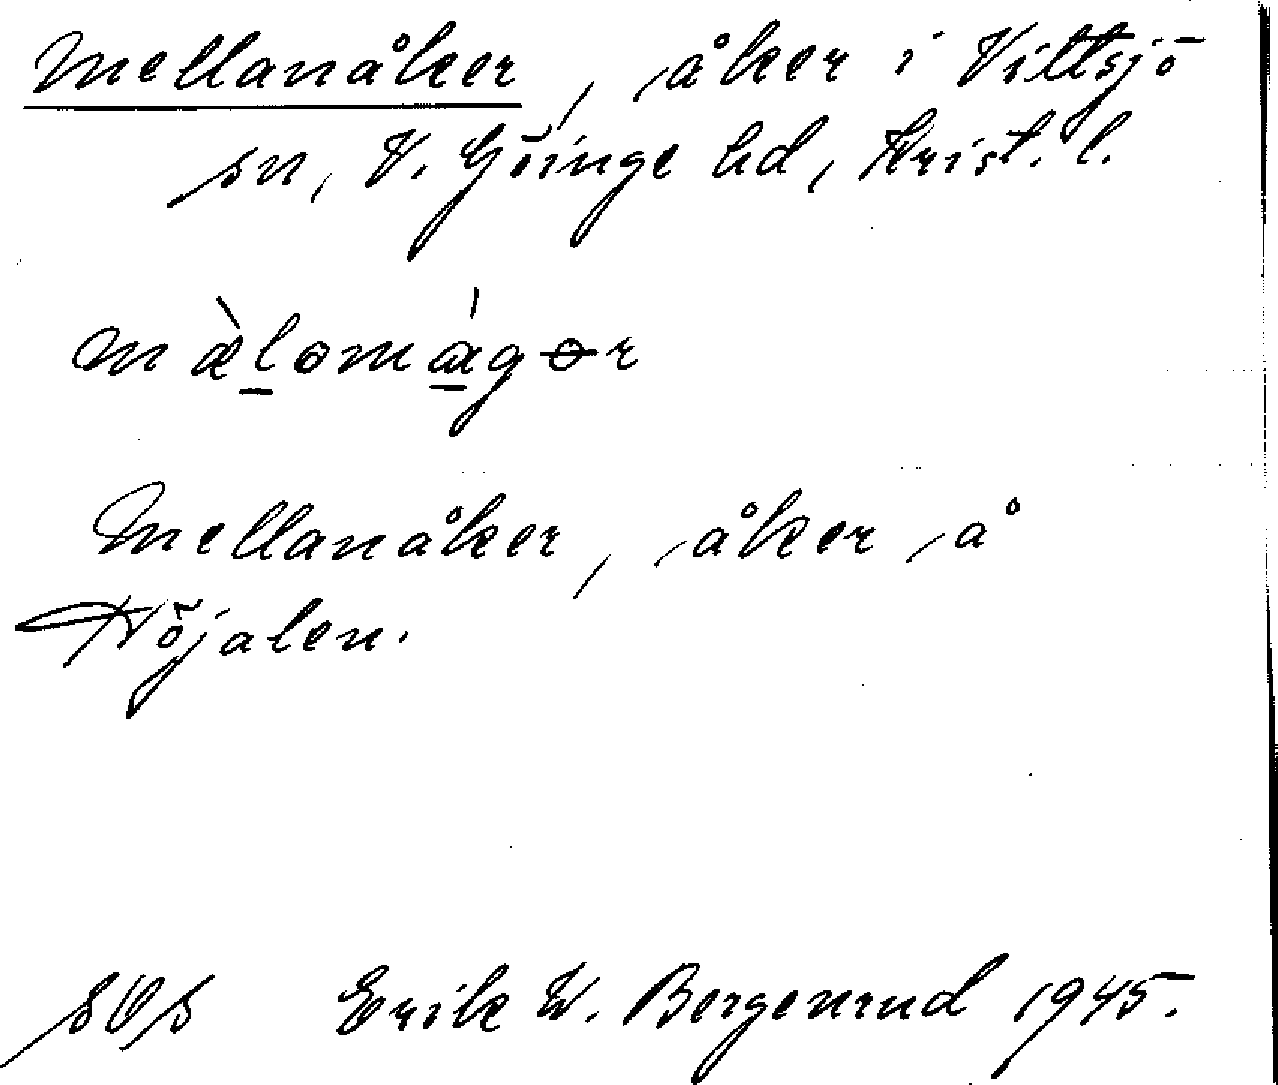 Mellanåker, åker i Vittsjö
sn, V. Göinge hd, Krist. l.
mæ̀l̲omɑ̲́gɵr
Mellanåker, åker å
Höjalen.
SOS Erik W. Bergenrud 1945.